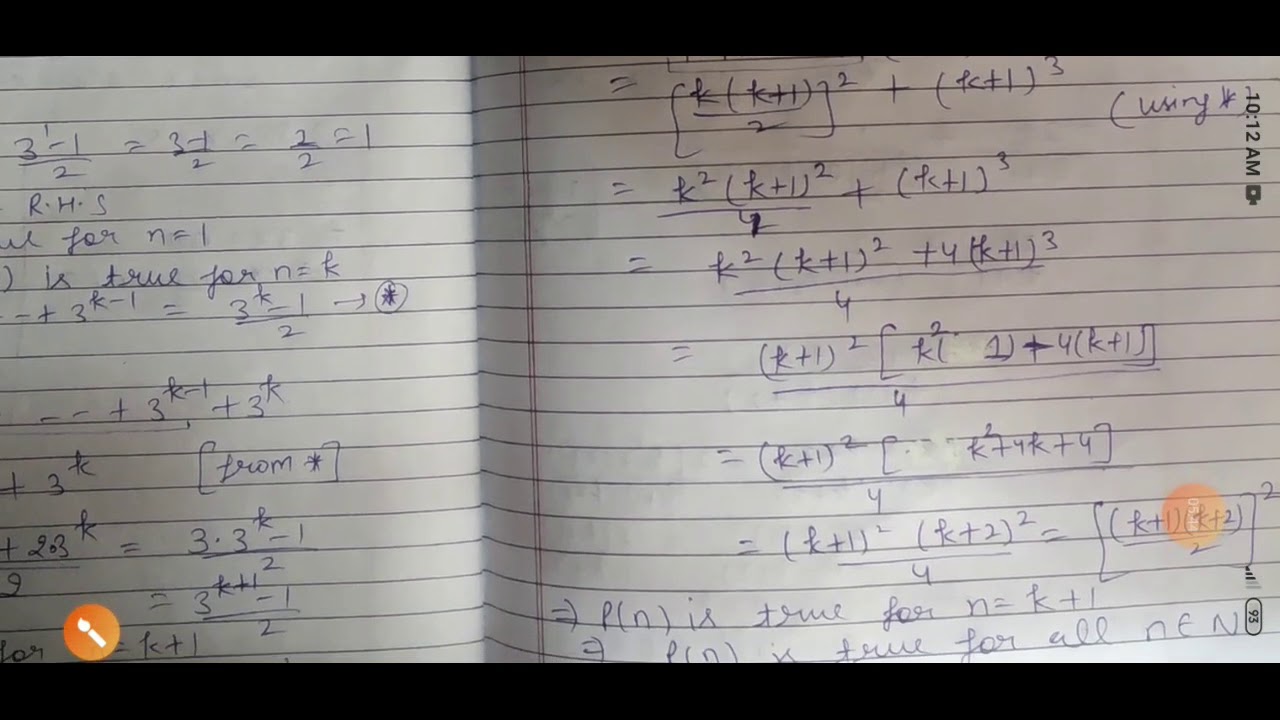 3¹-1/2 = 3-1/2 = 2/2 = 1
R.H.S
for n=1
) is true for n=k
--+ 3^(k-1) = (3^k-1)/2 → (*)
--+ 3^(k-1) + 3^k
+ 3^k [from *]
+ 2.3^k = (3.3^k-1)/2
= (3^(k+1)-1)/2
for = k+1
= [k(k+1)/2]² + (k+1)³
(using *
= k²(k+1)²/4 + (k+1)³
= (k²(k+1)² + 4(k+1)³)/4
= (k+1)²[k²( 1)+4(k+1)]/4
= (k+1)²[k²+4k+4]/4
= (k+1)²(k+2)²/4 = [(k+1)(k+2)/2]²
⇒ P(n) is true for n=k+1
⇒ P(n) is true for all n∈N
10:12 AM
93